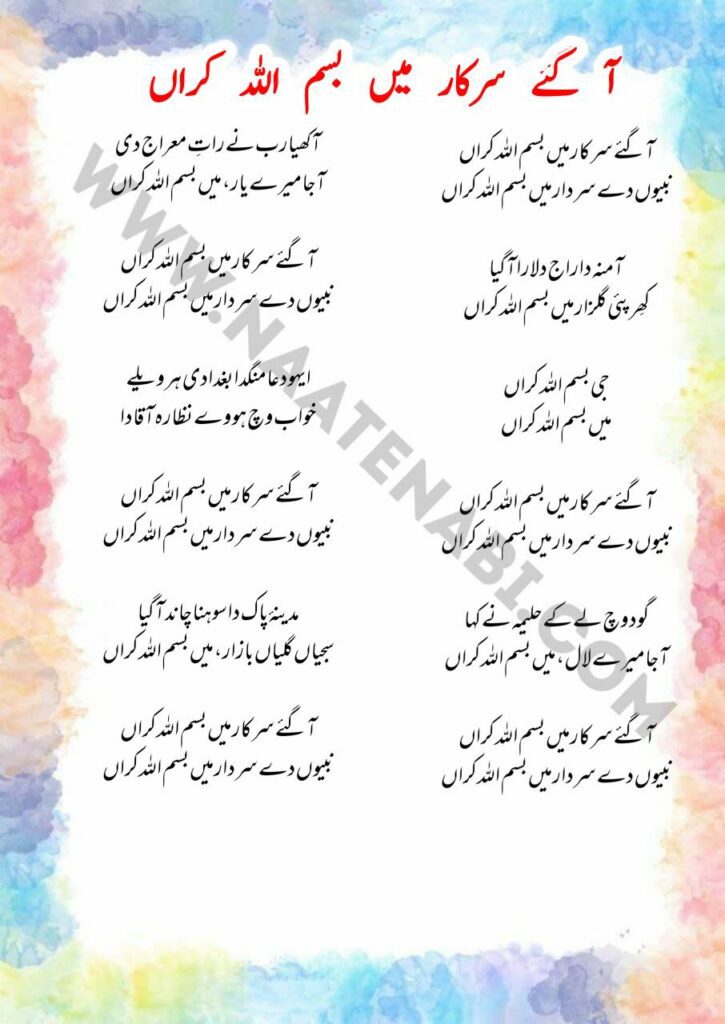 آ گئے سرکار میں بسم اللہ کراں
آ گئے سرکار میں بسم اللہ کراں
نبیوں دے سردار میں بسم اللہ کراں
آمنہ دا راج دلارا آ گیا
کھِر پئی گلزار میں بسم اللہ کراں
جی بسم اللہ کراں
میں بسم اللہ کراں
آ گئے سرکار میں بسم اللہ کراں
نبیوں دے سردار میں بسم اللہ کراں
گود وچ لے کے حلیمہ نے کہا
آجا میرے لال، میں بسم اللہ کراں
آ گئے سرکار میں بسم اللہ کراں
نبیوں دے سردار میں بسم اللہ کراں
آکھیا رب نے راتِ معراج دی
آجا میرے یار، میں بسم اللہ کراں
آ گئے سرکار میں بسم اللہ کراں
نبیوں دے سردار میں بسم اللہ کراں
ایہو دعا منگدا بغدادی ہر ویلے
خواب وچ ہووے نظارہ آقا دا
آ گئے سرکار میں بسم اللہ کراں
نبیوں دے سردار میں بسم اللہ کراں
مدینۂ پاک دا سوہنا چاند آ گیا
سجیاں گلیاں بازار، میں بسم اللہ کراں
آ گئے سرکار میں بسم اللہ کراں
نبیوں دے سردار میں بسم اللہ کراں
WWW.NAATENABI.COM